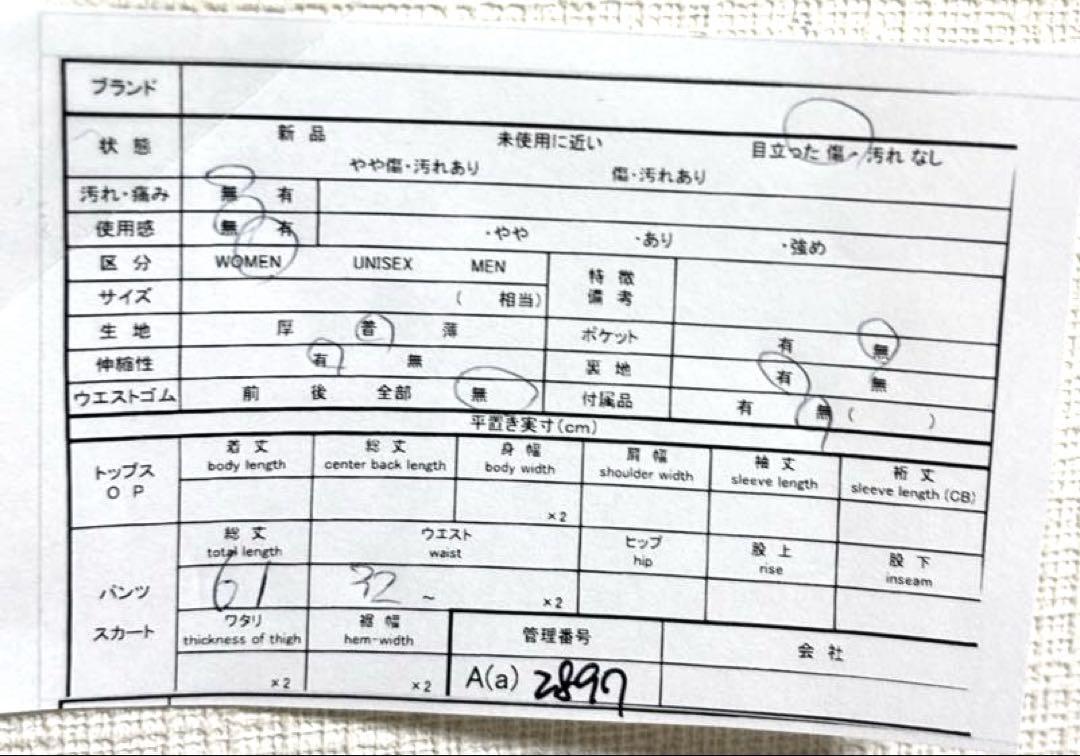 ブランド
状態 新品 未使用に近い 目立った 傷・汚れ なし
やや傷・汚れあり 傷・汚れあり
汚れ・痛み 無 有
使用感 無 有 ・やや ・あり ・強め
区分 WOMEN UNISEX MEN 特徴
備考
サイズ ( 相当)
生地 厚 普 薄 ポケット 有 無
伸縮性 有 無 裏地 有 無
ウエストゴム 前 後 全部 無 付属品 有 無 ( )
平置き実寸(cm)
トップス
OP
着丈
body length
総丈
center back length
身幅
body width
肩幅
shoulder width
袖丈
sleeve length
裄丈
sleeve length (CB)
×2
パンツ
スカート
総丈
total length
ウエスト
waist
ヒップ
hip
股上
rise
股下
inseam
61 32 ~ ×2
ワタリ
thickness of thigh
裾幅
hem-width
管理番号
会社
×2 ×2 A(a) 2897